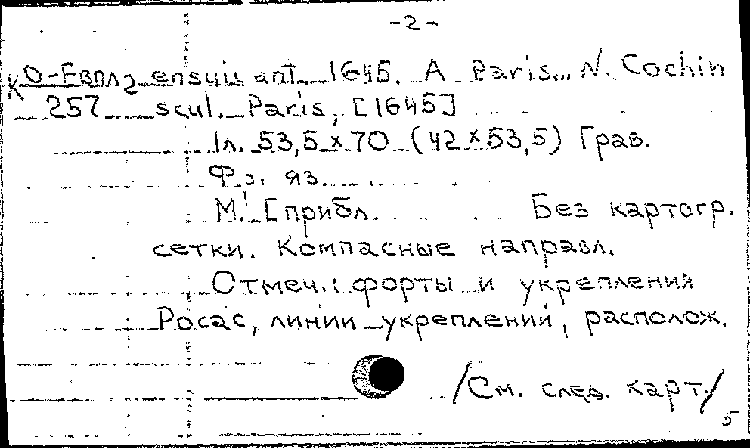 -2-
К О-Евпл2 ensuiu ant. 1645. A Paris... N. Cochin
257 scul. Paris, [1645]
1л. 53,5x70 (42x53,5) Грав.
Фр. яз.
М. [прибл. Без картогр.
сетки. Компасные направл.
Отмеч.: форты и укрепления
Росас, линии укреплений, располож.
/См. след. карт./
5